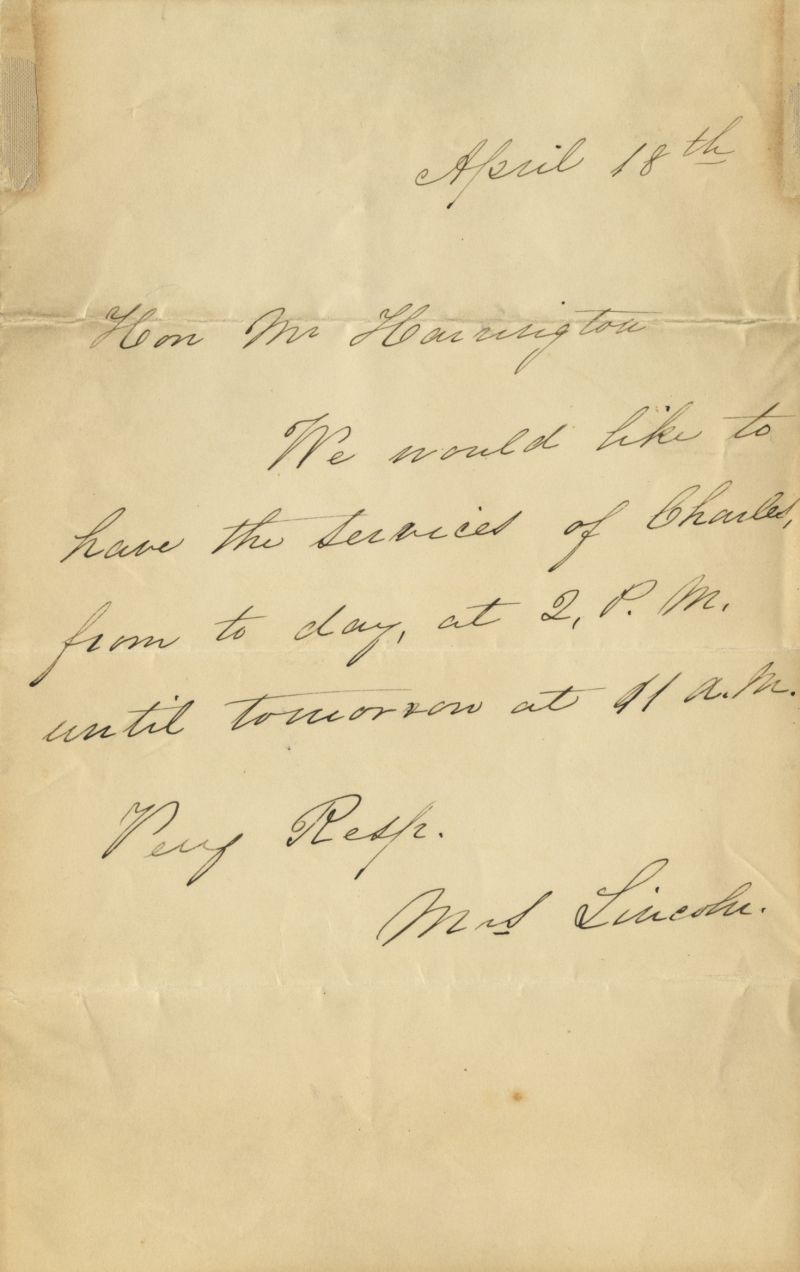 April 18th
Hon Mr Harrington
We would like to
have the services of Charles,
from to day, at 2, P. M.
until tomorrow at 11 A. M.
Very Resp.
Mrs Lincoln.